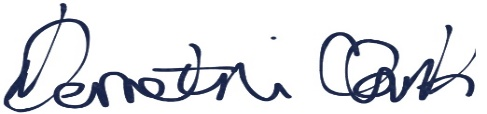 Demetri Clark